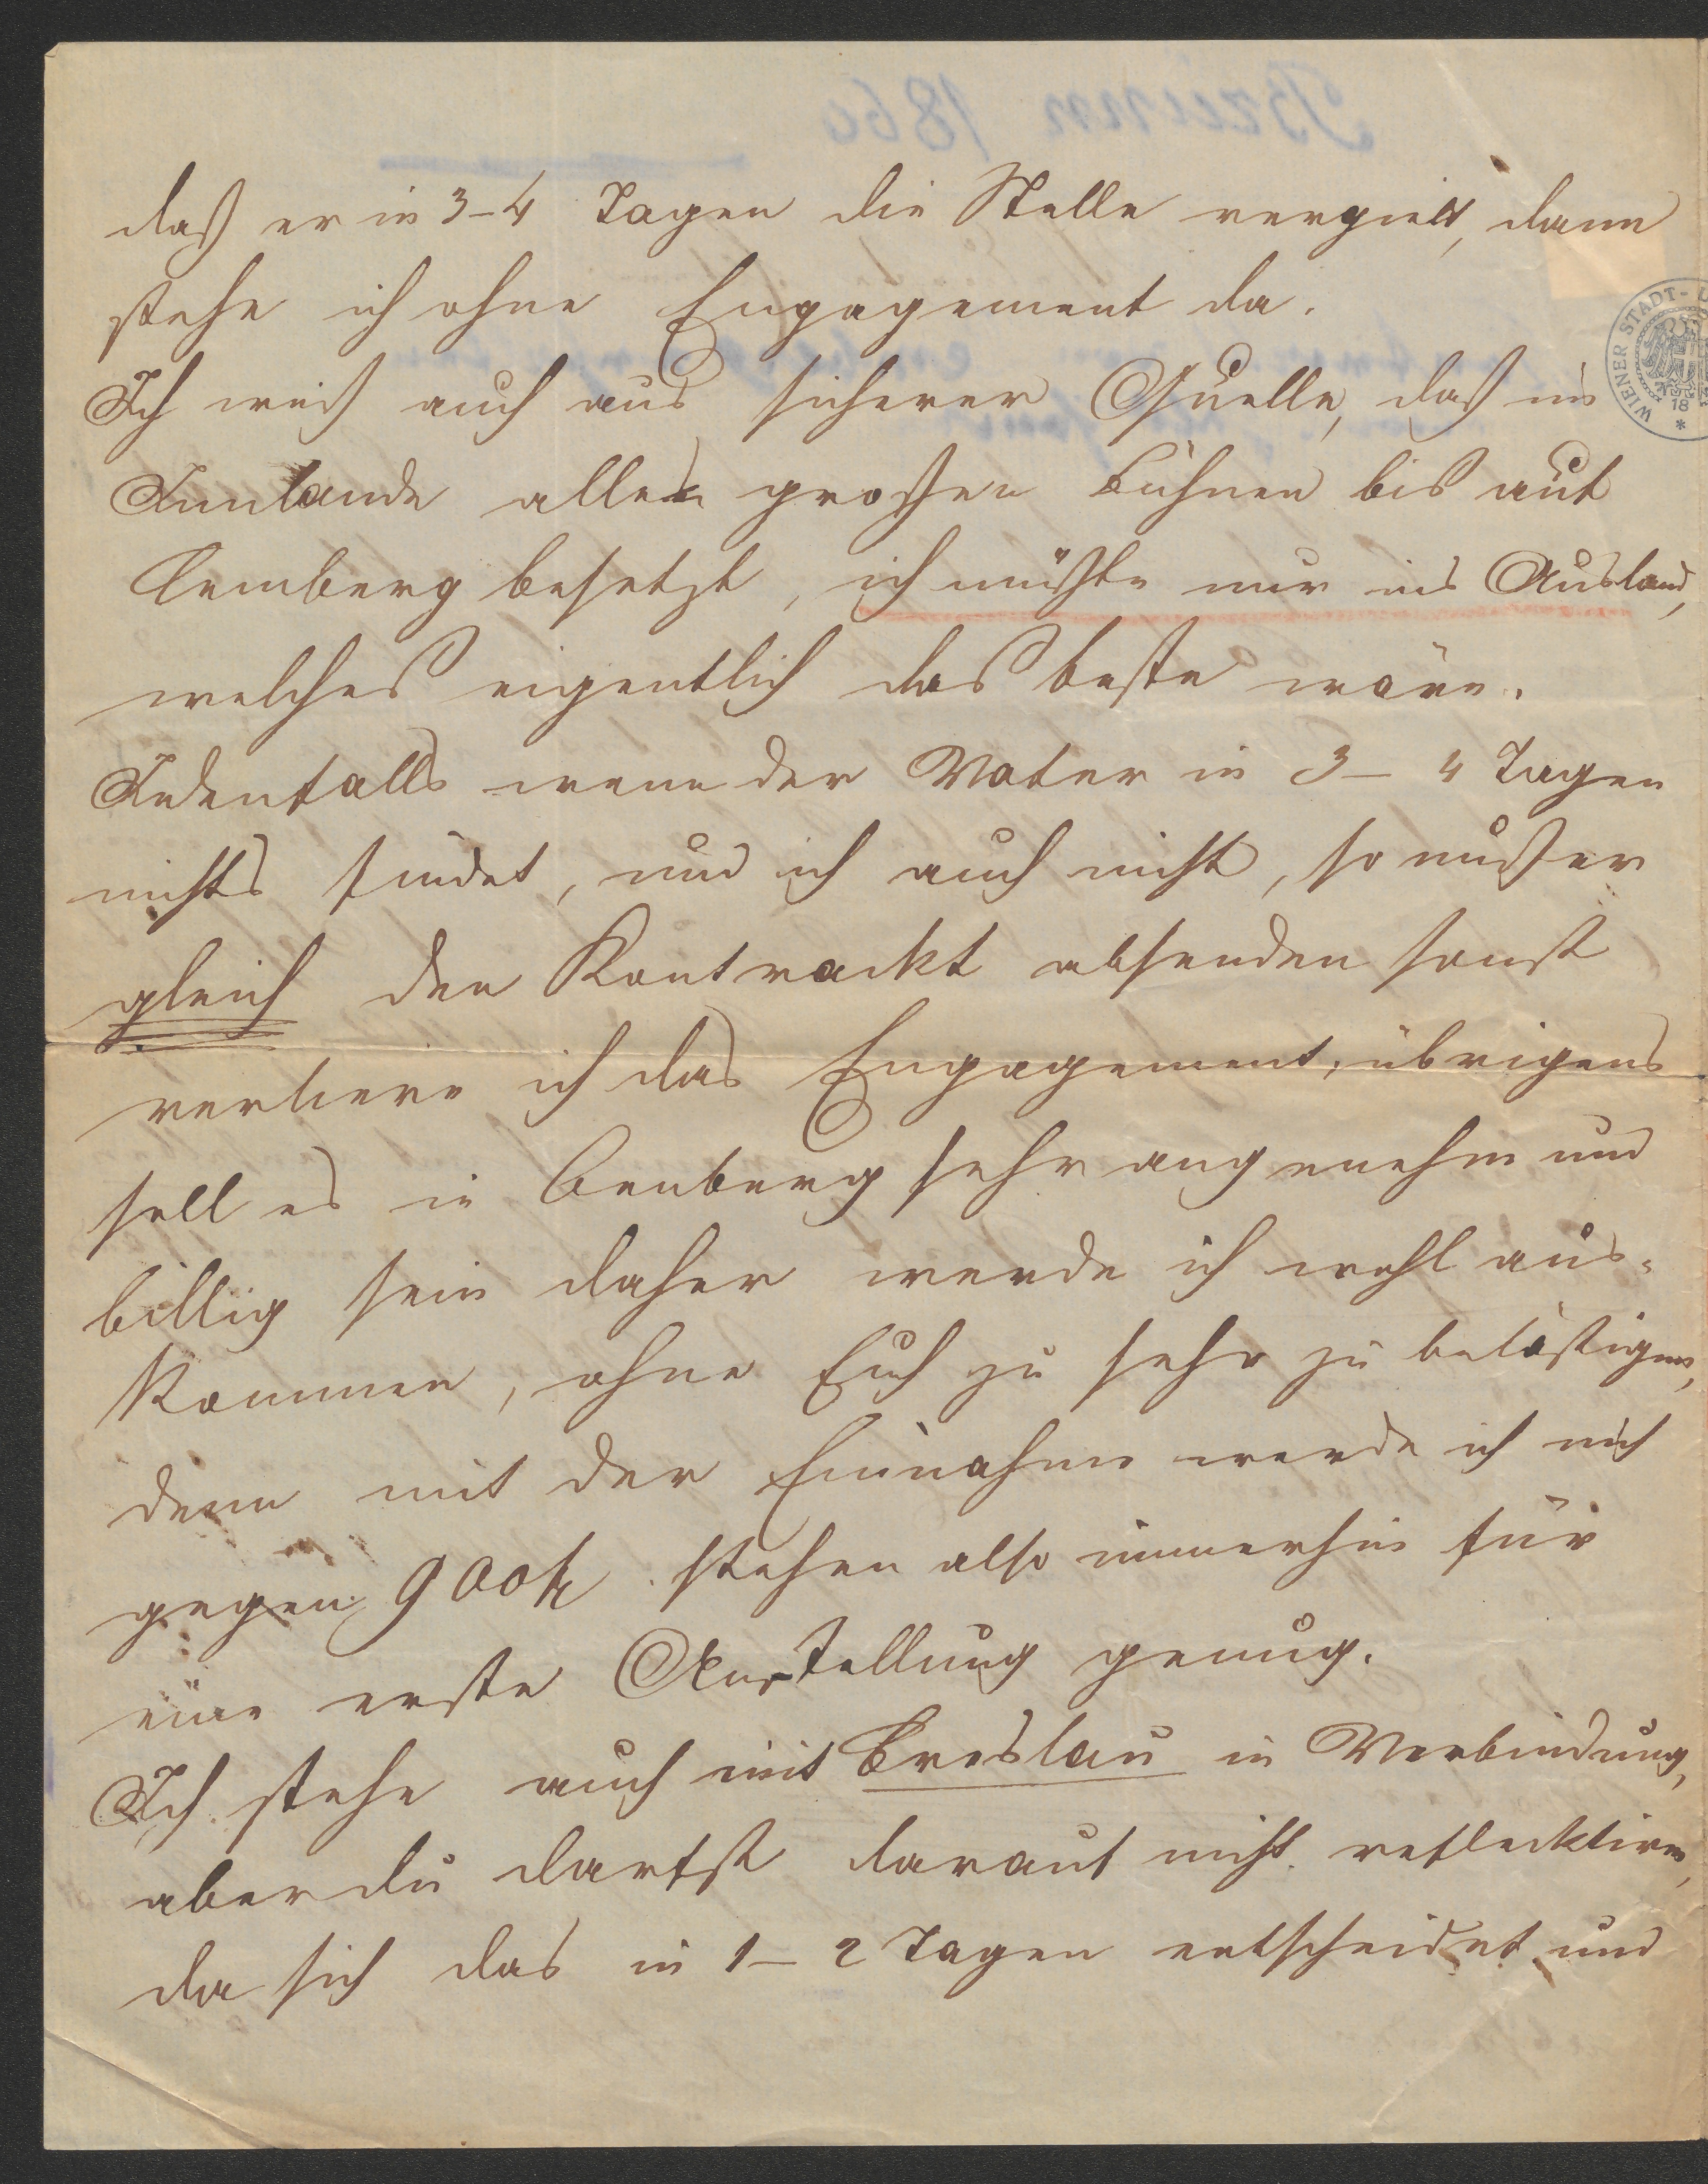 daß er in 3–4 Tagen die Stelle vergiebt, dann
stehe ich ohne Engagement da.
Ich weiß auch aus sicherer Quelle, daß im
Innlande alle großen Bühnen bis auf
Lemberg besetzt, ich müßte nur ins Ausland,
welches eigentlich das beste wäre.
Jedenfalls wenn der Vater in 3–4 Tagen
nichts findet, und ich auch nicht, so muß er
gleich den Kontrackt absenden sonst
verliere ich das Engagement; übrigens
soll es in Lemberg sehr angenehm und
billig sein daher werde ich wohl aus-
kommen, ohne Euch zu sehr zu belästigen,
denn mit der Einnahme werde ich mich
gegen 900 fl. stehen also immerhin für
eine erste Anstellung genug.
Ich stehe auch mit Breslau in Verbindung,
aber du darfst darauf nicht reflecktiren,
da sich das in 1–2 Tagen entscheidet und
WIENER STADT-
18